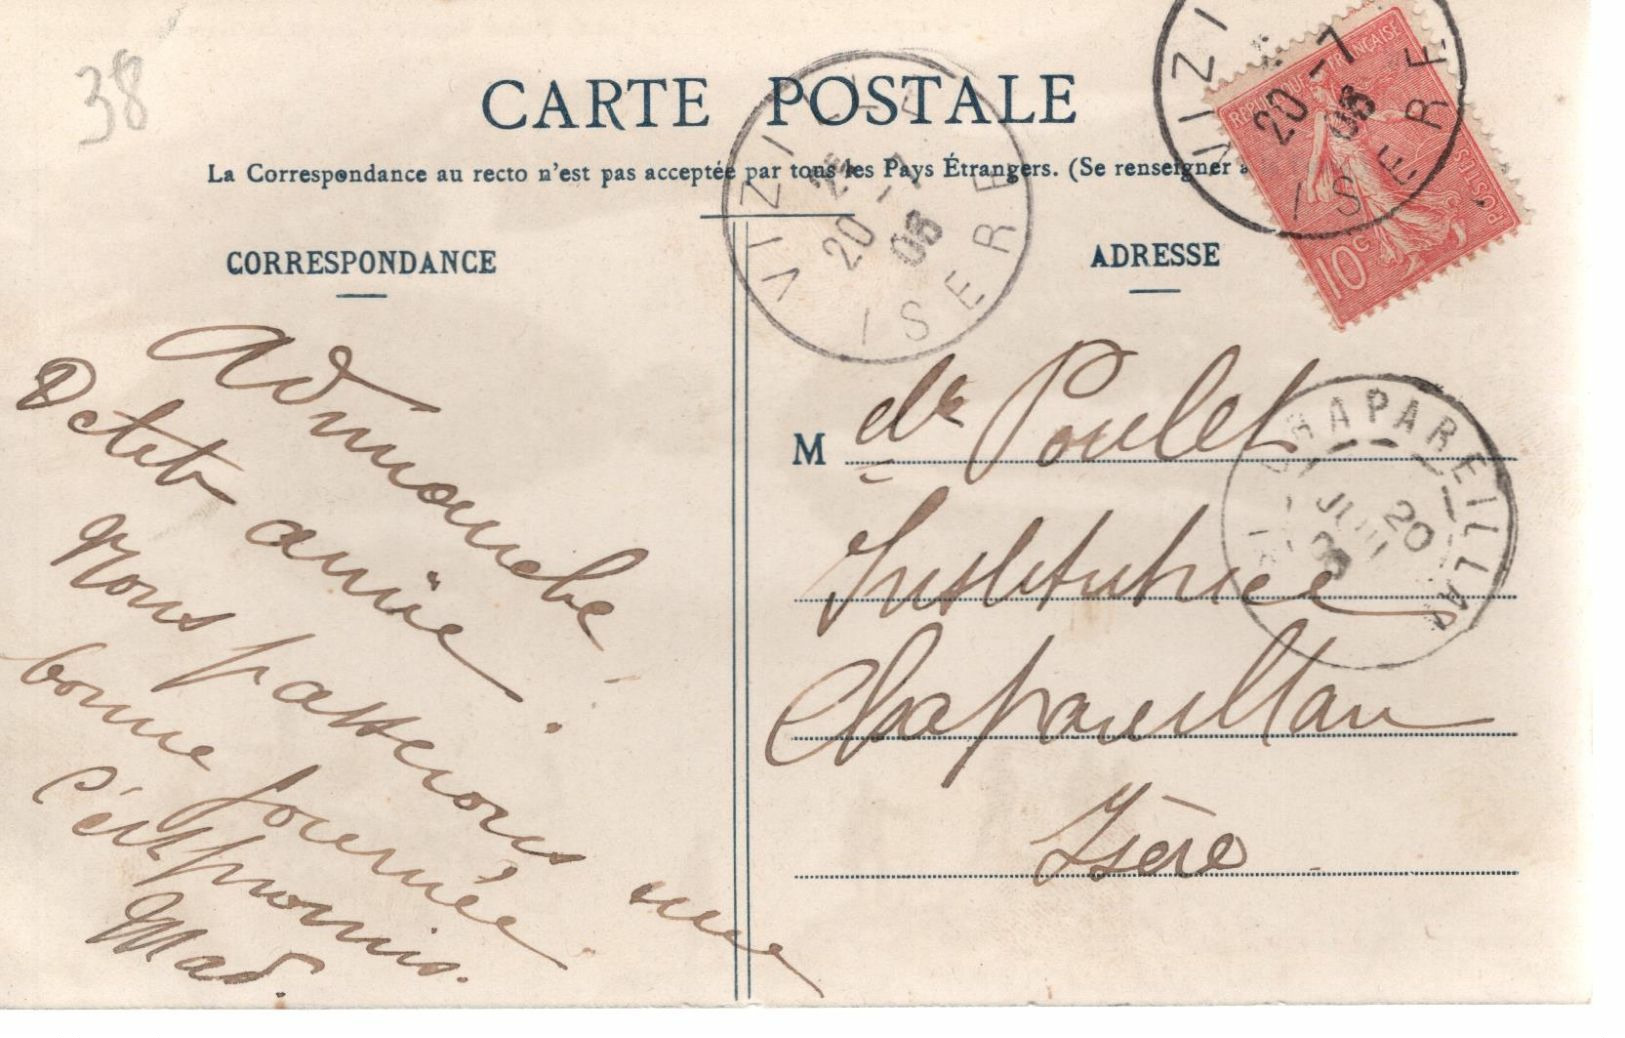 38
CARTE POSTALE
La Correspondance au recto n'est pas acceptée par tous les Pays Étrangers. (Se renseigner
CORRESPONDANCE
ADRESSE
VIZI
20 -7
06
ISERE
VIZI
20 -7
06
ISERE
REPUBLIQUE FRANÇAISE
POSTES
10c
CHAPAREILLAN
20
JUIL
A Dimanche
petite amie.
Nous passerons une
bonne journée.
C'est promis.
Mad.
M elle Poulet
Institutrice
Chapareillan
Isère